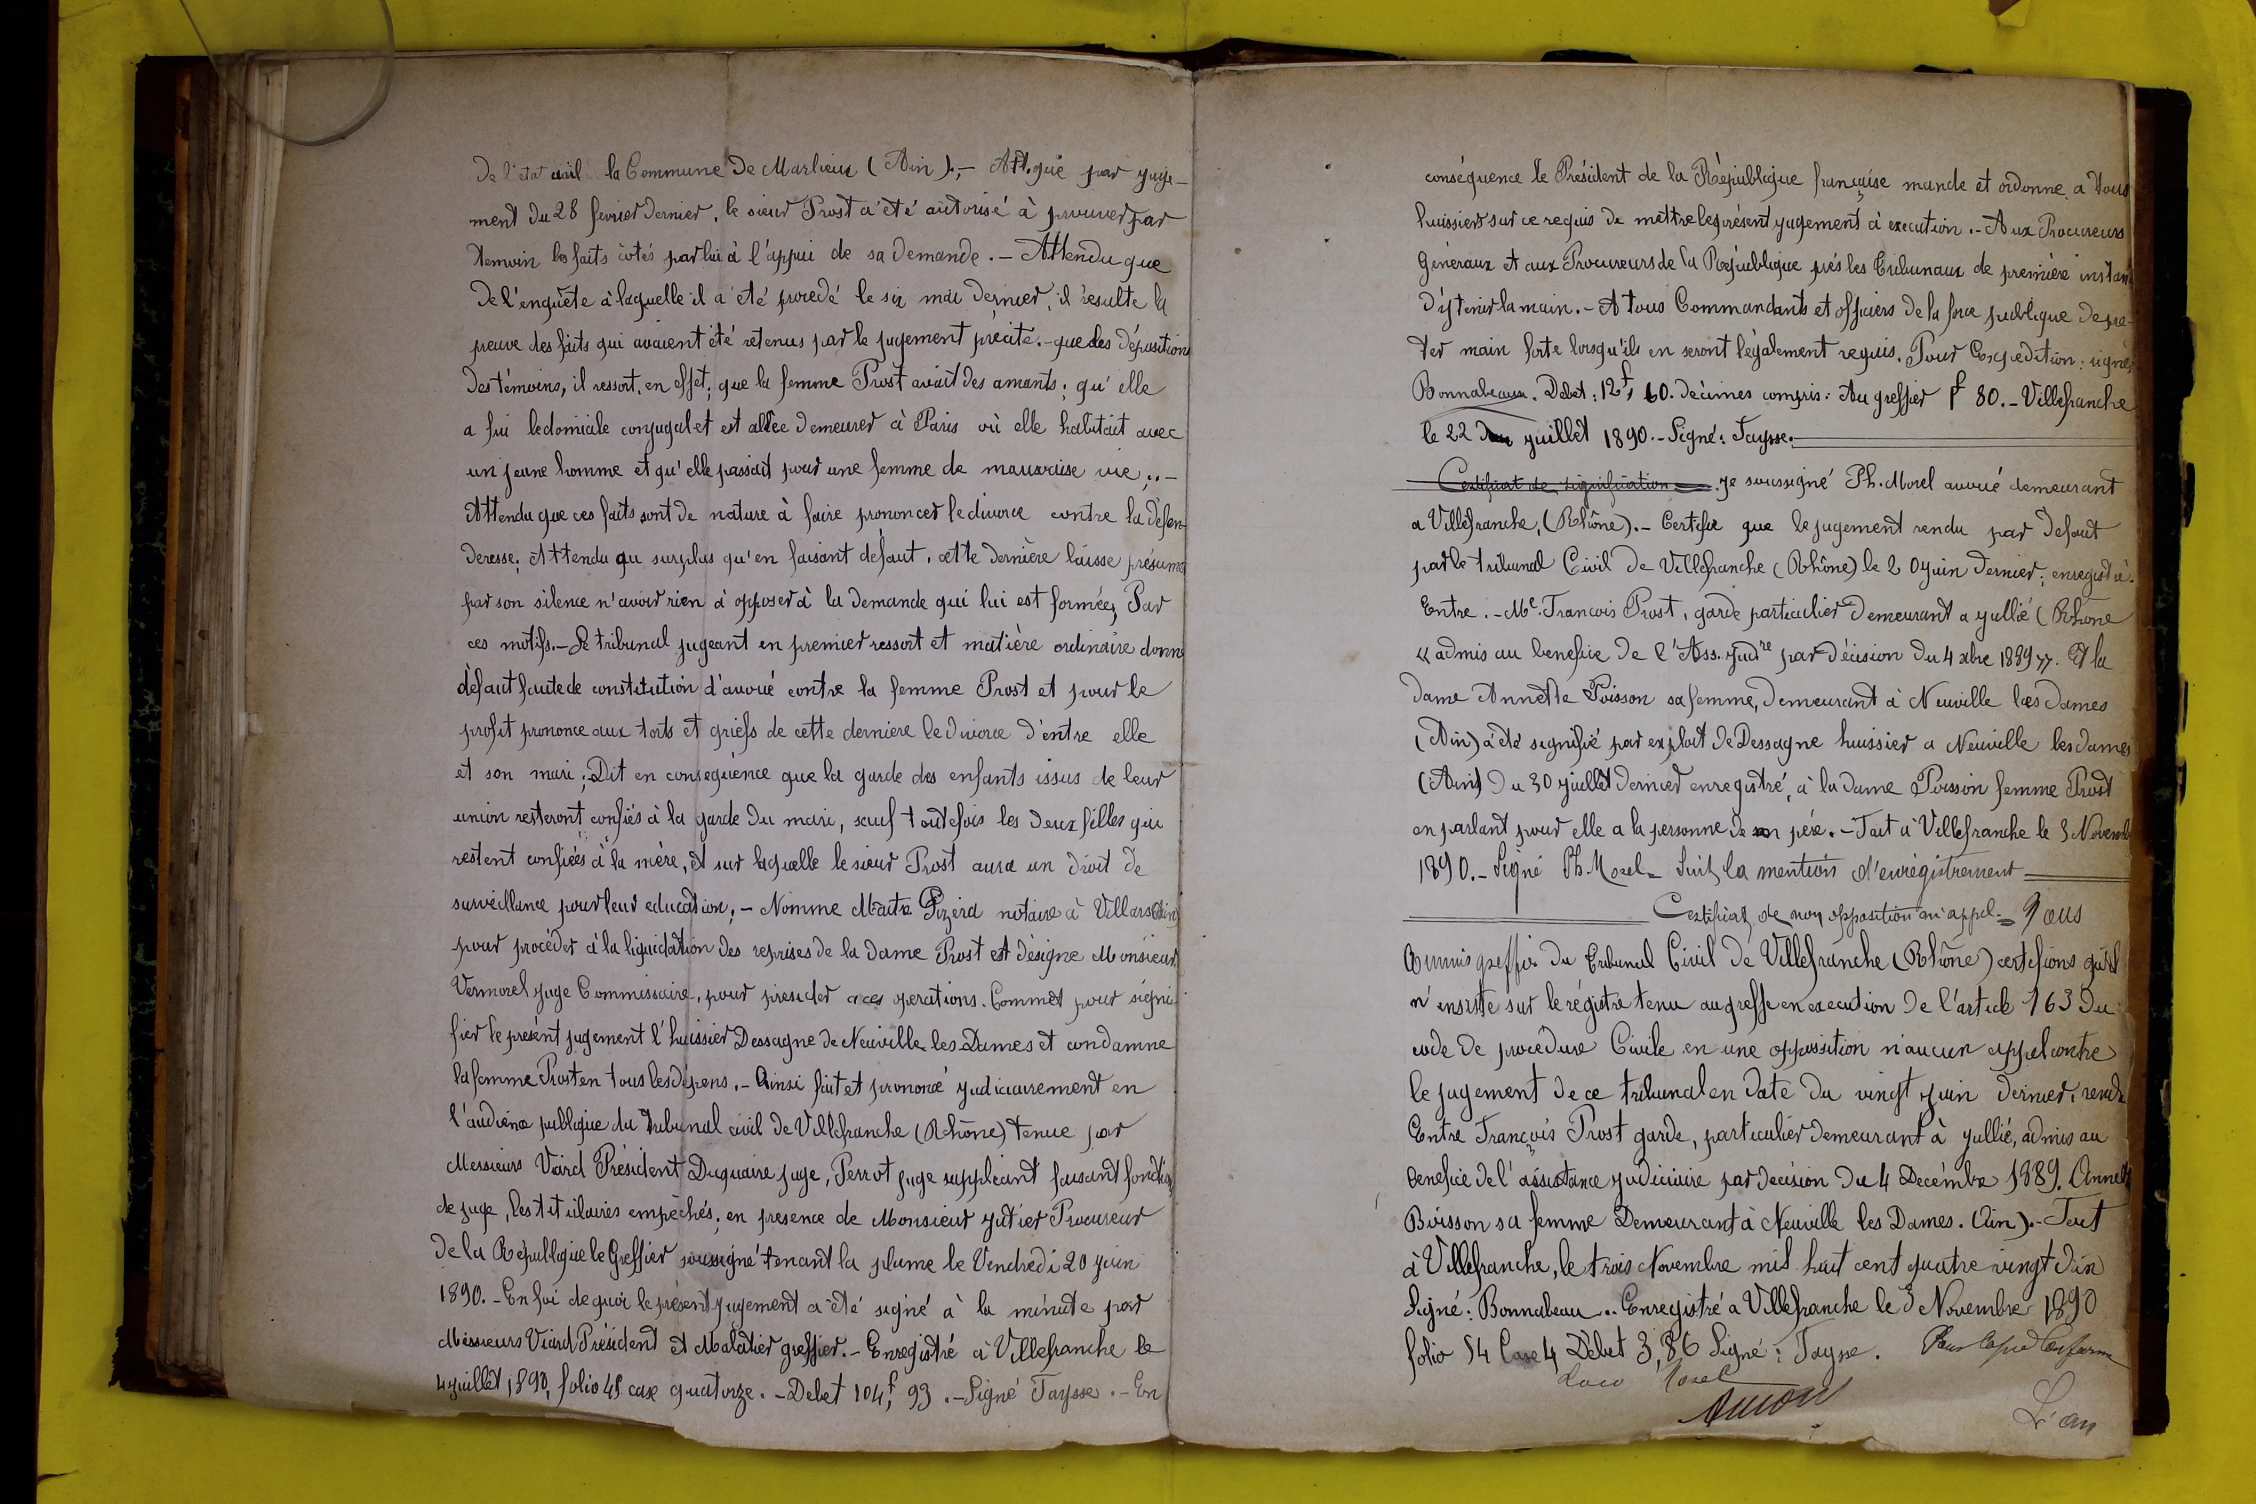 De l'état civil la Commune de Marlieux (Ain).- Att. que par juge-
ment du 28 fevrier dernier, le sieur Prost a été autorisé à prouver par
temoin les faits cotés par lui à l'appui de sa demande. - Attendu que
De l'enquête à laquelle il a été procedé le six mai dernier, il résulte la
preuve des faits qui avaient été retenus par le jugement precité. - que des dépositions
des témoins, il ressort, en effet, que la femme Prost avait des amants; qu'elle
a fui le domicile conjugal et est allée demeurer à Paris où elle habitait avec
un jeune homme et qu'elle passait pour une femme de mauvaise vie;.-
Attendu que ces faits sont de nature à faire prononcer le divorce contre la défen-
deresse; Attendu au surplus qu'en faisant défaut, cette dernière laisse présumer
par son silence n'avoir rien à opposer à la demande qui lui est formée, Par
ces motifs. - Le tribunal jugeant en premier ressort et matière ordinaire donne
défaut faute de constitution d'avoué contre la femme Prost et pour le
profit prononce aux torts et griefs de cette derniere le divorce d'entre elle
et son mari; Dit en conséquence que la garde des enfants issus de leur
union resteront confiés à la garde du mari, sauf toutefois les deux filles qui
restent confiées à la mère, et sur laquelle le sieur Prost aura un droit de
surveillance pour leur education; - Nomme Maitre Pizéra notaire à Villars (Ain)
pour procéder à la liquidation des reprises de la dame Prost et désigne Monsieur
Vermorel juge Commissaire, pour presider a ces operations. Commet pour signi-
fier le présent jugement l'huissier Dessagne de Neuville les Dames et condamne
la femme Prost en tous les dépens. - Ainsi fait et prononcé judiciairement en
l'audience publique du Tribunal civil de Villefranche (Rhône) tenue par
Messieurs Viard Président Duquaire juge, Perrot juge suppléant faisant fonction
de juge, les titulaires empêchés; en presence de Monsieur Jutier Procureur
de la République le Greffier soussigné tenant la plume le Vendredi 20 juin
1890. - En foi de quoi le présent jugement a été signé à la minute par
Messieurs Viard Président et Malatier greffier. - Enregistré à Villefranche le
4 juillet 1890, folio 48 case quatorze. - Debet 104f, 93. - Signé Taysse. - En
conséquence le Président de la République française mande et ordonne a tous
huissiers sur ce requis de mettre le présent jugement à execution. - Aux Procureurs
Généraux et aux Procureurs de la République près les Tribunaux de première instan
d'y tenir la main. - A tous Commandants et officiers de la force publique de pre-
ter main forte lorsqu'ils en seront légalement requis. Pour Expedition: signé;
Bonnabeaux. Debet: 12f, 60. decimes compris: Au greffier 1f 80. - Villefranche
le 22 juillet 1890. - Signé: Taysse.
Certificat de signification je soussigné Ph. Morel avoué demeurant
a Villefranche, (Rhône). - Certifie que le jugement rendu par defaut
par le tribunal Civil de Villefranche (Rhône) le 20 juin dernier; enregistré.
Entre. - Me. Francois Prost, garde particulier demeurant a Jullié (Rhone
« admis au benefice de l'Ass. judre par décision du 4 xbre 1889 ». Et la
dame Annette Poisson sa femme, demeurant à Neuville les Dames
(Ain) a été signifié par exploit de Dessagne huissier a Neuville les dames
(Ain) du 30 juillet dernier enregistré, à la dame Poisson femme Prost
en parlant pour elle a la personne de son père. - Fait à Villefranche le 3 Novemb
1890. - Signé Ph. Morel - Suit la mention d'enregistrement
Certificat de non opposition ni appel = Nous
Commis greffier du Tribunal Civil de Villefranche (Rhône) certifions qu'il
n'ensiste sur le régistre tenu au greffe en execution de l'article 163 du
code de procedure Civile en une opposition n'aucun appel contre
le jugement de ce tribunal en date du vingt juin dernier, rendu
Entre François Prost garde, particulier demeurant à Jullié, admis au
benefice de l'assistance judiciaire par decision du 4 Decémbre 1889. Annette
Boisson sa femme Demeurant à Neuville les Dames. (Ain). - Fait
à Villefranche, le trois Novembre mil huit cent quatre vingt dix
Signé: Bonnabeau.. Enregistré a Villefranche le 3 Novembre 1890
folio 54 Case 4 Debet 3,86 Signé: Taysse. Pour Copie Conforme
Morel